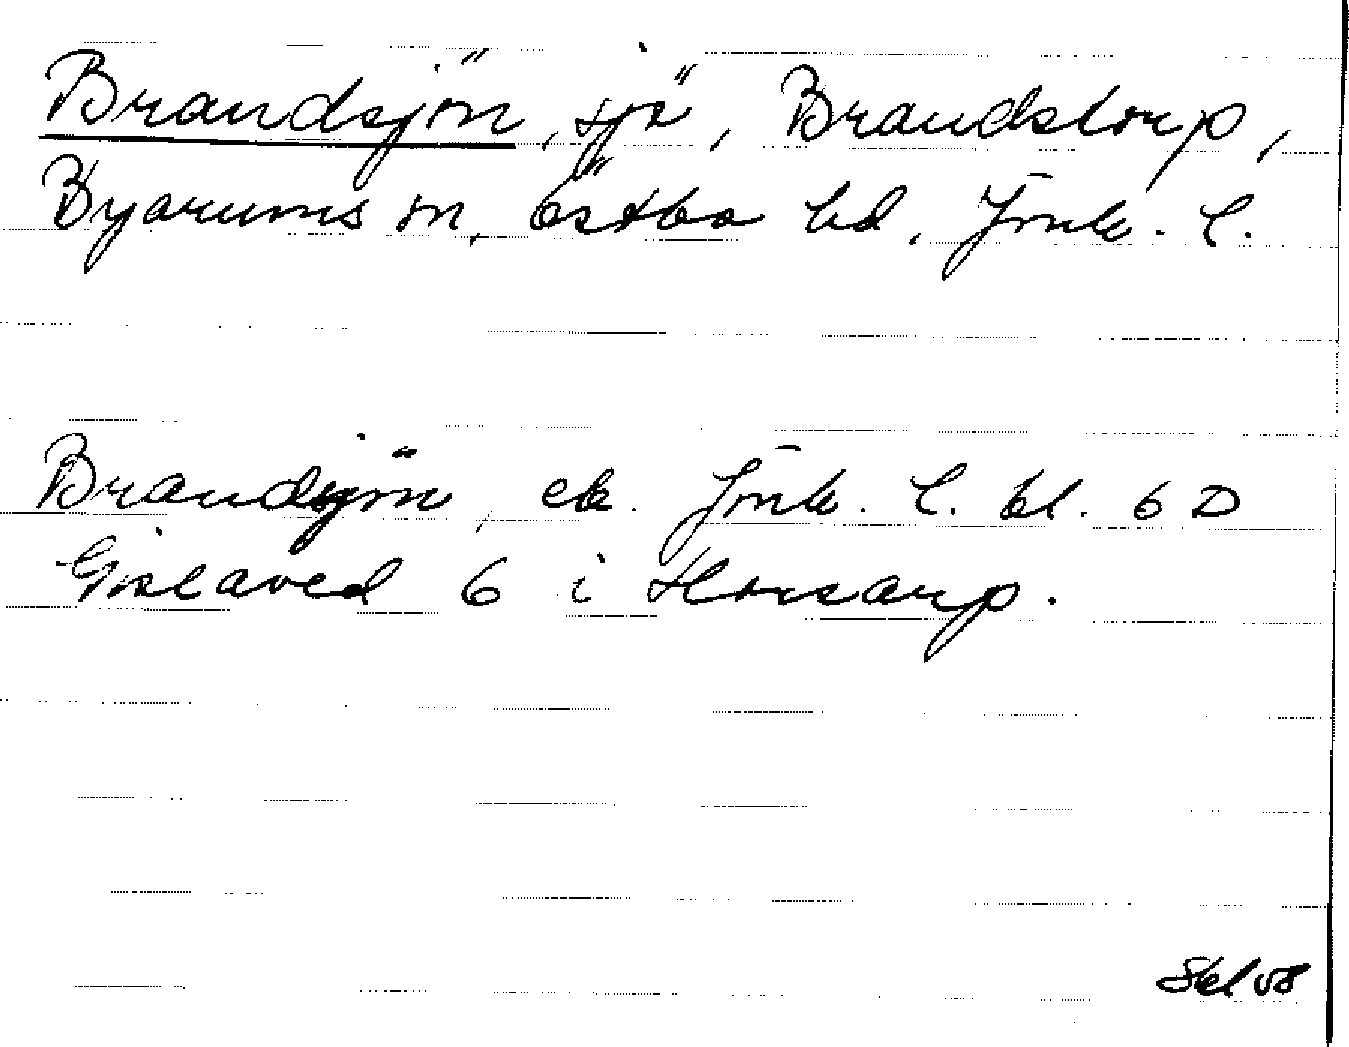 Brandsjön, sjö, Brandstorp,
Byarums sn, Östbo hd, Jönk. l.
Brandsjön, ek. Jönk. l. bl. 6 D
Gislaved 6 i Horsarp.